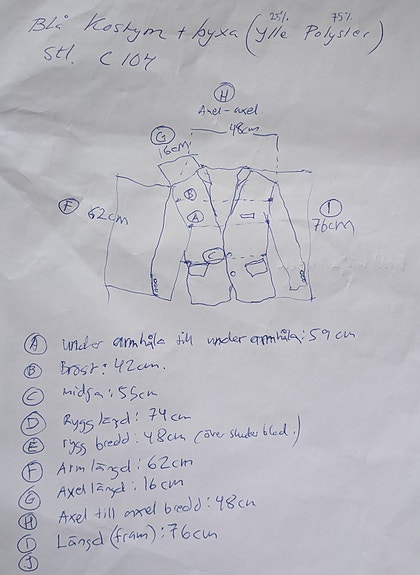 Blå Kostym + byxa (25% ylle 75% Polyster)
Stl. C 104
H
Axel-axel
48cm
G
16cm
B
F 62cm
A
I
76cm
C
A under armhåla till under armhåla: 59cm
B Bröst: 42cm.
C midja: 55cm
D Rygg längd: 74cm
E rygg bredd: 48cm (över skulderblad.)
F Arm längd: 62cm
G Axel längd: 16cm
H Axel till axel bredd: 48cm
I Längd (fram): 76cm
J